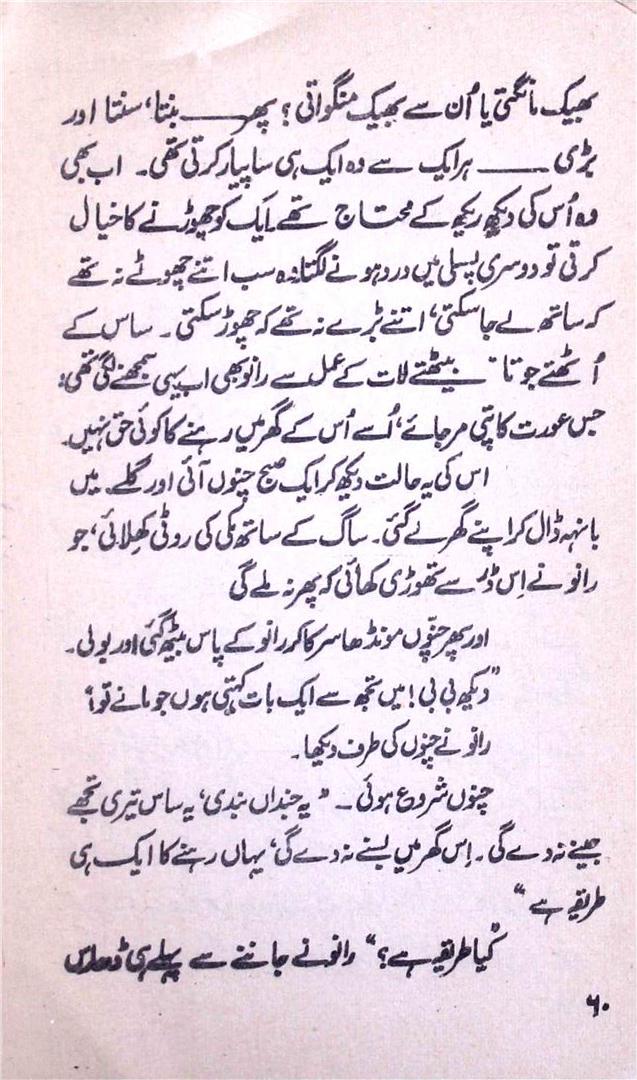 بھیک مانگتی یا اُن سے بھیک منگواتی؟ پھر ــــــ بنتا، سنتا اور
بڑی ــــــ ہر ایک سے وہ ایک ہی سا پیار کرتی تھی۔ اب بھی
وہ اُس کی دیکھ ریکھ کے محتاج تھے۔ ایک کو چھوڑنے کا خیال
کرتی تو دوسری پسلی میں درد ہونے لگتا۔ وہ سب اتنے چھوٹے نہ تھے
کہ ساتھ لے جا سکتی، اتنے بڑے نہ تھے کہ چھوڑ سکتی۔ ساس کے
اُٹھتے جوتا بیٹھتے لات کے عمل سے رانو بھی اب یہی سمجھنے لگی تھی:
جس عورت کا پتی مر جائے، اُسے اُس کے گھر میں رہنے کا کوئی حق نہیں۔
اس کی یہ حالت دیکھ کر ایک صبح چنّوں آئی اور گلے میں
بانہہ ڈال کر اپنے گھر لے گئی۔ ساگ کے ساتھ مکی کی روٹی کھلائی، جو
رانو نے اِس ڈر سے تھوڑی کھائی کہ پھر نہ ملے گی
اور پھر چنّوں مونڈھا سرکا کر رانو کے پاس بیٹھ گئی اور بولی۔
"دیکھ بی بی! میں تجھ سے ایک بات کہتی ہوں جو مانے تو؟
رانو نے چنّوں کی طرف دیکھا۔
چنّوں شروع ہوئی۔ "یہ جنداں بندی، یہ ساس تیری تجھے
جینے نہ دے گی۔ اِس گھر میں بسنے نہ دے گی، یہاں رہنے کا ایک ہی
طریقہ ہے"
"کیا طریقہ ہے؟" رانو نے جاننے سے پہلے ہی ڈھارس
۶۰